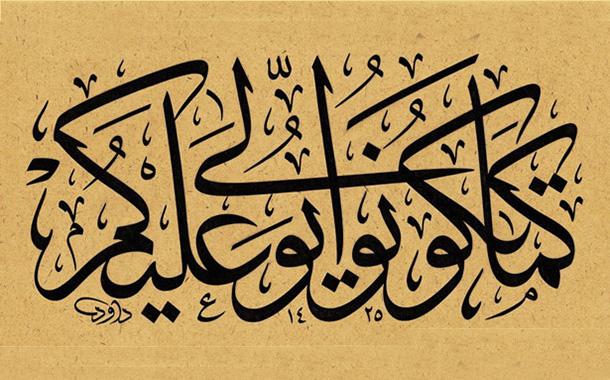 كما تكونوا يولى عليكم
١٤٢٥
داود